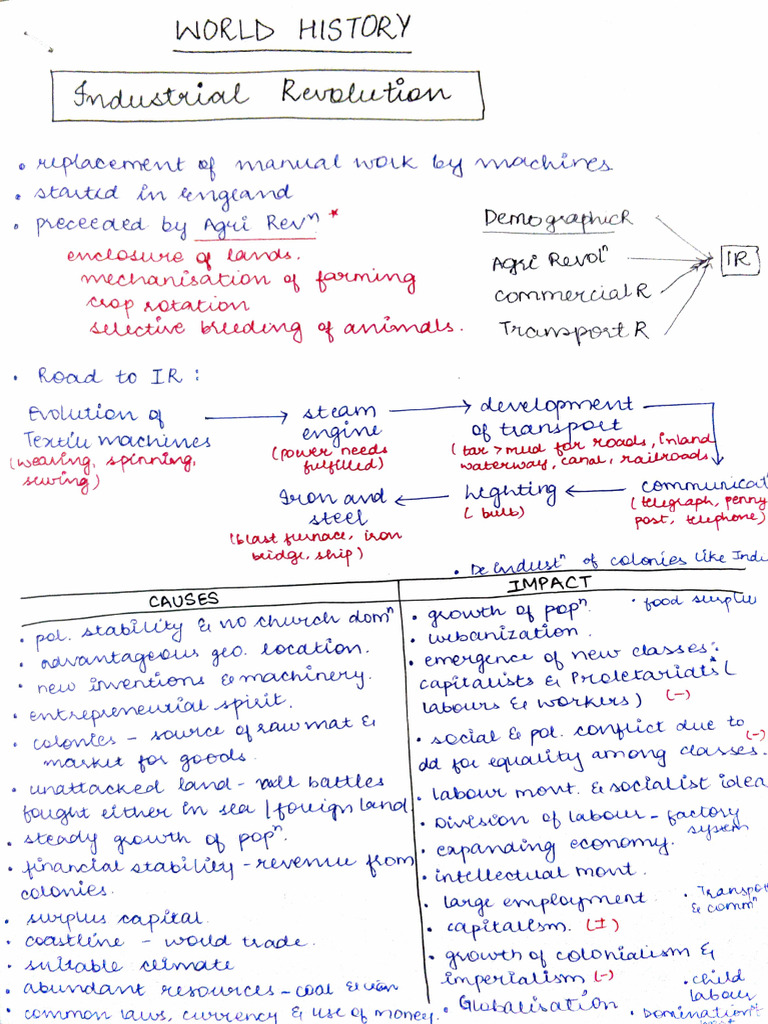 WORLD HISTORY
Industrial Revolution
• replacement of manual work by machines
• started in England
• preceeded by Agri Revⁿ *
enclosure of lands.
mechanisation of farming
crop rotation
selective breeding of animals.
Demographic R
Agri Revolⁿ
Commercial R
Transport R
IR
• Road to IR :
Evolution of
Textile machines
(weaving, spinning,
sewing)
steam
engine
(power needs
fulfilled)
development
of transport
(tar > mud for roads, inland
waterway, canal, railroads
communicat
(telegraph, penny
post, telephone)
lighting
(bulb)
Iron and
steel
(blast furnace, iron
bridge, ship)
• De Industⁿ of colonies like Indi
CAUSES
• pol. stability & no church domⁿ
• advantageous geo. location.
• new inventions & machinery.
• entrepreneurial spirit.
• colonies – source of raw mat &
market for goods.
• unattacked land – all battles
fought either in sea / foreign land
• steady growth of popⁿ.
• financial stability – revenue from
colonies.
• surplus capital
• coastline – world trade.
• suitable climate
• abundant resources – coal & iron
• common laws, currency & use of money.
IMPACT
• growth of popⁿ. • food surplu
• urbanization.
• emergence of new classes:
capitalists & Proletariats (
labours & workers) (-)
• social & pol. conflict due to (-)
dd for equality among classes.
• labour movt. & socialist idea
• Division of labour – factory
system
• expanding economy.
• intellectual movt.
• large employment • Transpo
& commⁿ
• capitalism. (±)
• growth of colonialism &
imperialism (-) • child
labour
• Globalisation • Domination